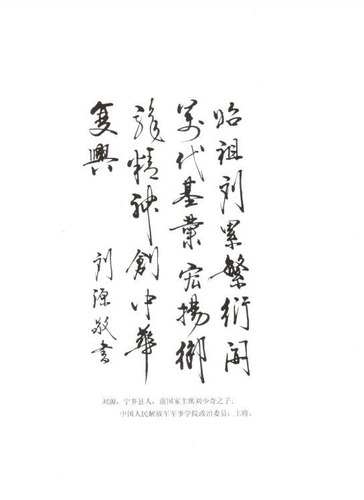 始祖刘累繁衍开
萬代基業宏揚御
龍精神創中華
复興
刘源敬書
刘源，宁乡县人，前国家主席刘少奇之子；
中国人民解放军军事学院政治委员，上将。